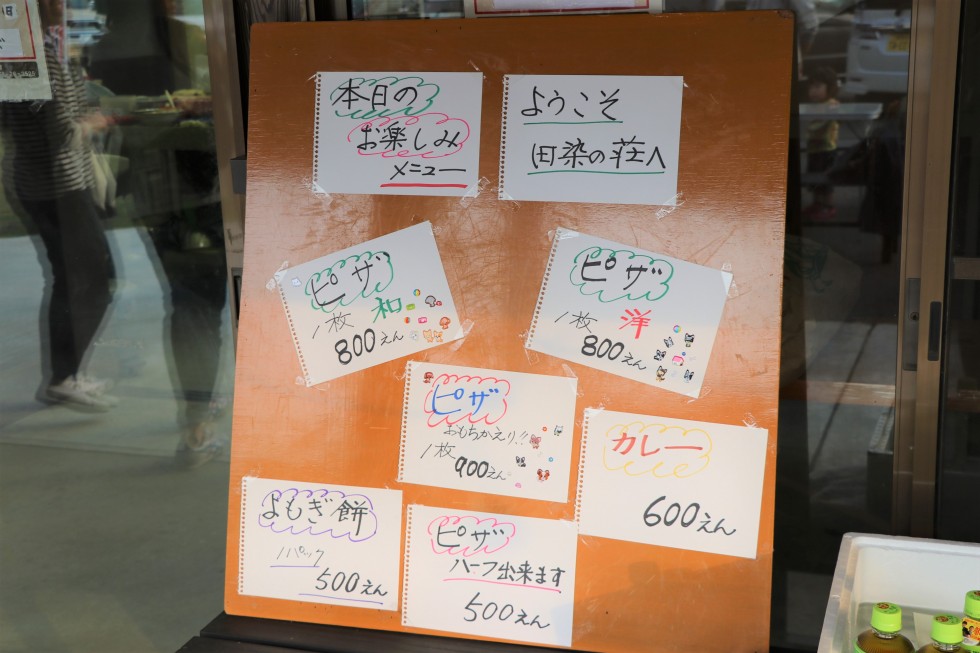 本日の
お楽しみ
メニュー
ようこそ
田染の荘へ
ピザ
和
1枚
800えん
ピザ
洋
1枚
800えん
ピザ
おもちかえり!!
1枚
900えん
カレー
600えん
よもぎ餅
1パック
500えん
ピザ
ハーフ出来ます
500えん